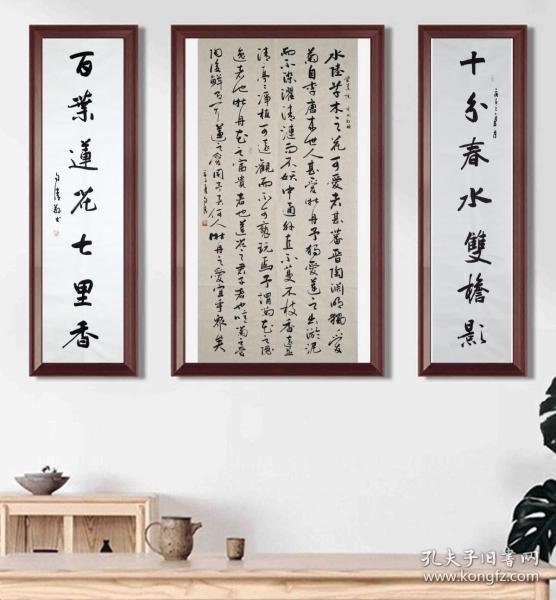 十分春水雙檐影
水陸草木之花可愛者甚蕃晋陶渊明獨愛
菊自李唐來世人甚愛牡丹予獨愛蓮之出淤泥
而不染濯清漣而不妖中通外直不蔓不枝香遠益
清亭亭净植可遠觀而不可褻玩焉予謂菊花之隱
逸者也牡丹花之富貴者也蓮花之君子者也噫菊之愛
陶後鮮有聞蓮之愛同予者何人牡丹之愛宜乎衆矣
百葉蓮花七里香
孔夫子旧书网
www.kongfz.com